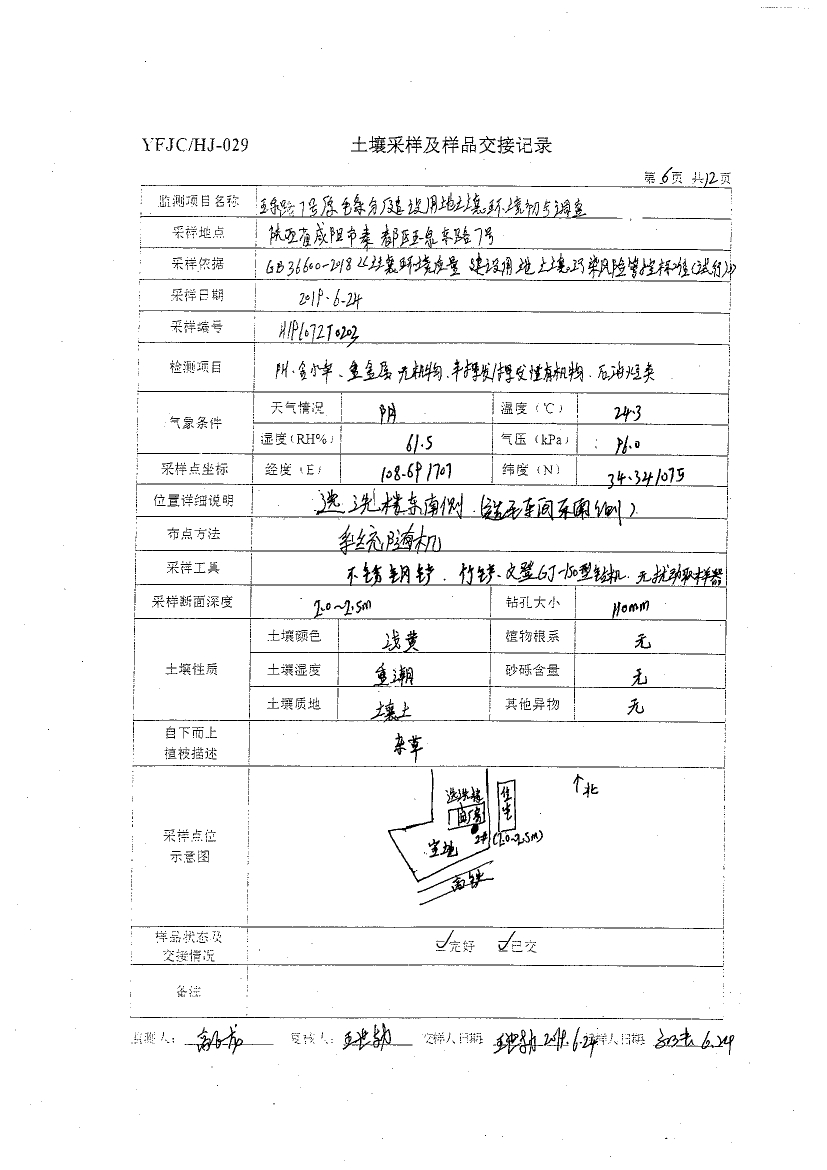 YFJC/HJ-029 土壤采样及样品交接记录
第6页 共12页
监测项目名称 玉泉路7号原毛条分厂建设用地土壤环境初步调查
采样地点 陕西省咸阳市秦都区玉泉东路7号
采样依据 GB36600-2018《土壤环境质量 建设用地土壤污染风险管控标准(试行)》
采样日期 2019.6.24
采样编号 H191072T0203
检测项目 重金属 无机物、半挥发/挥发性有机物、石油烃类
气象条件 天气情况 阴 温度(℃) 24.3
湿度(RH%) 61.5 气压(kPa) 96.0
采样点坐标 经度(E) 108.691707 纬度(N) 34.341075
位置详细说明 选洗楼东南侧(选毛车间东南侧)
布点方法 系统随机
采样工具 不锈钢铲、竹铲、GJ-150型钻机、无扰动取样器
采样断面深度 2.0~2.5m 钻孔大小 110mm
土壤性质 土壤颜色 浅黄 植物根系 无
土壤湿度 重潮 砂砾含量 无
土壤质地 壤土 其他异物 无
自下而上
植被描述 杂草
↑北
选洗楼 住宅
空地 2# (2.0~2.5m)
高铁
采样点位
示意图
样品状态及
交接情况 ☑完好 ☑已交
备注
监测人: 复核人: 交样人日期: 2019.6.24 接样人日期: 6.24